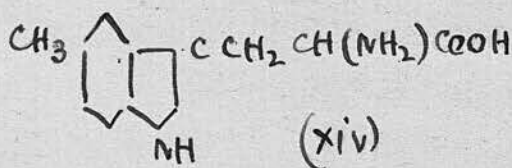 CH₃ C CH₂ CH(NH₂)COOH
NH (xiv)